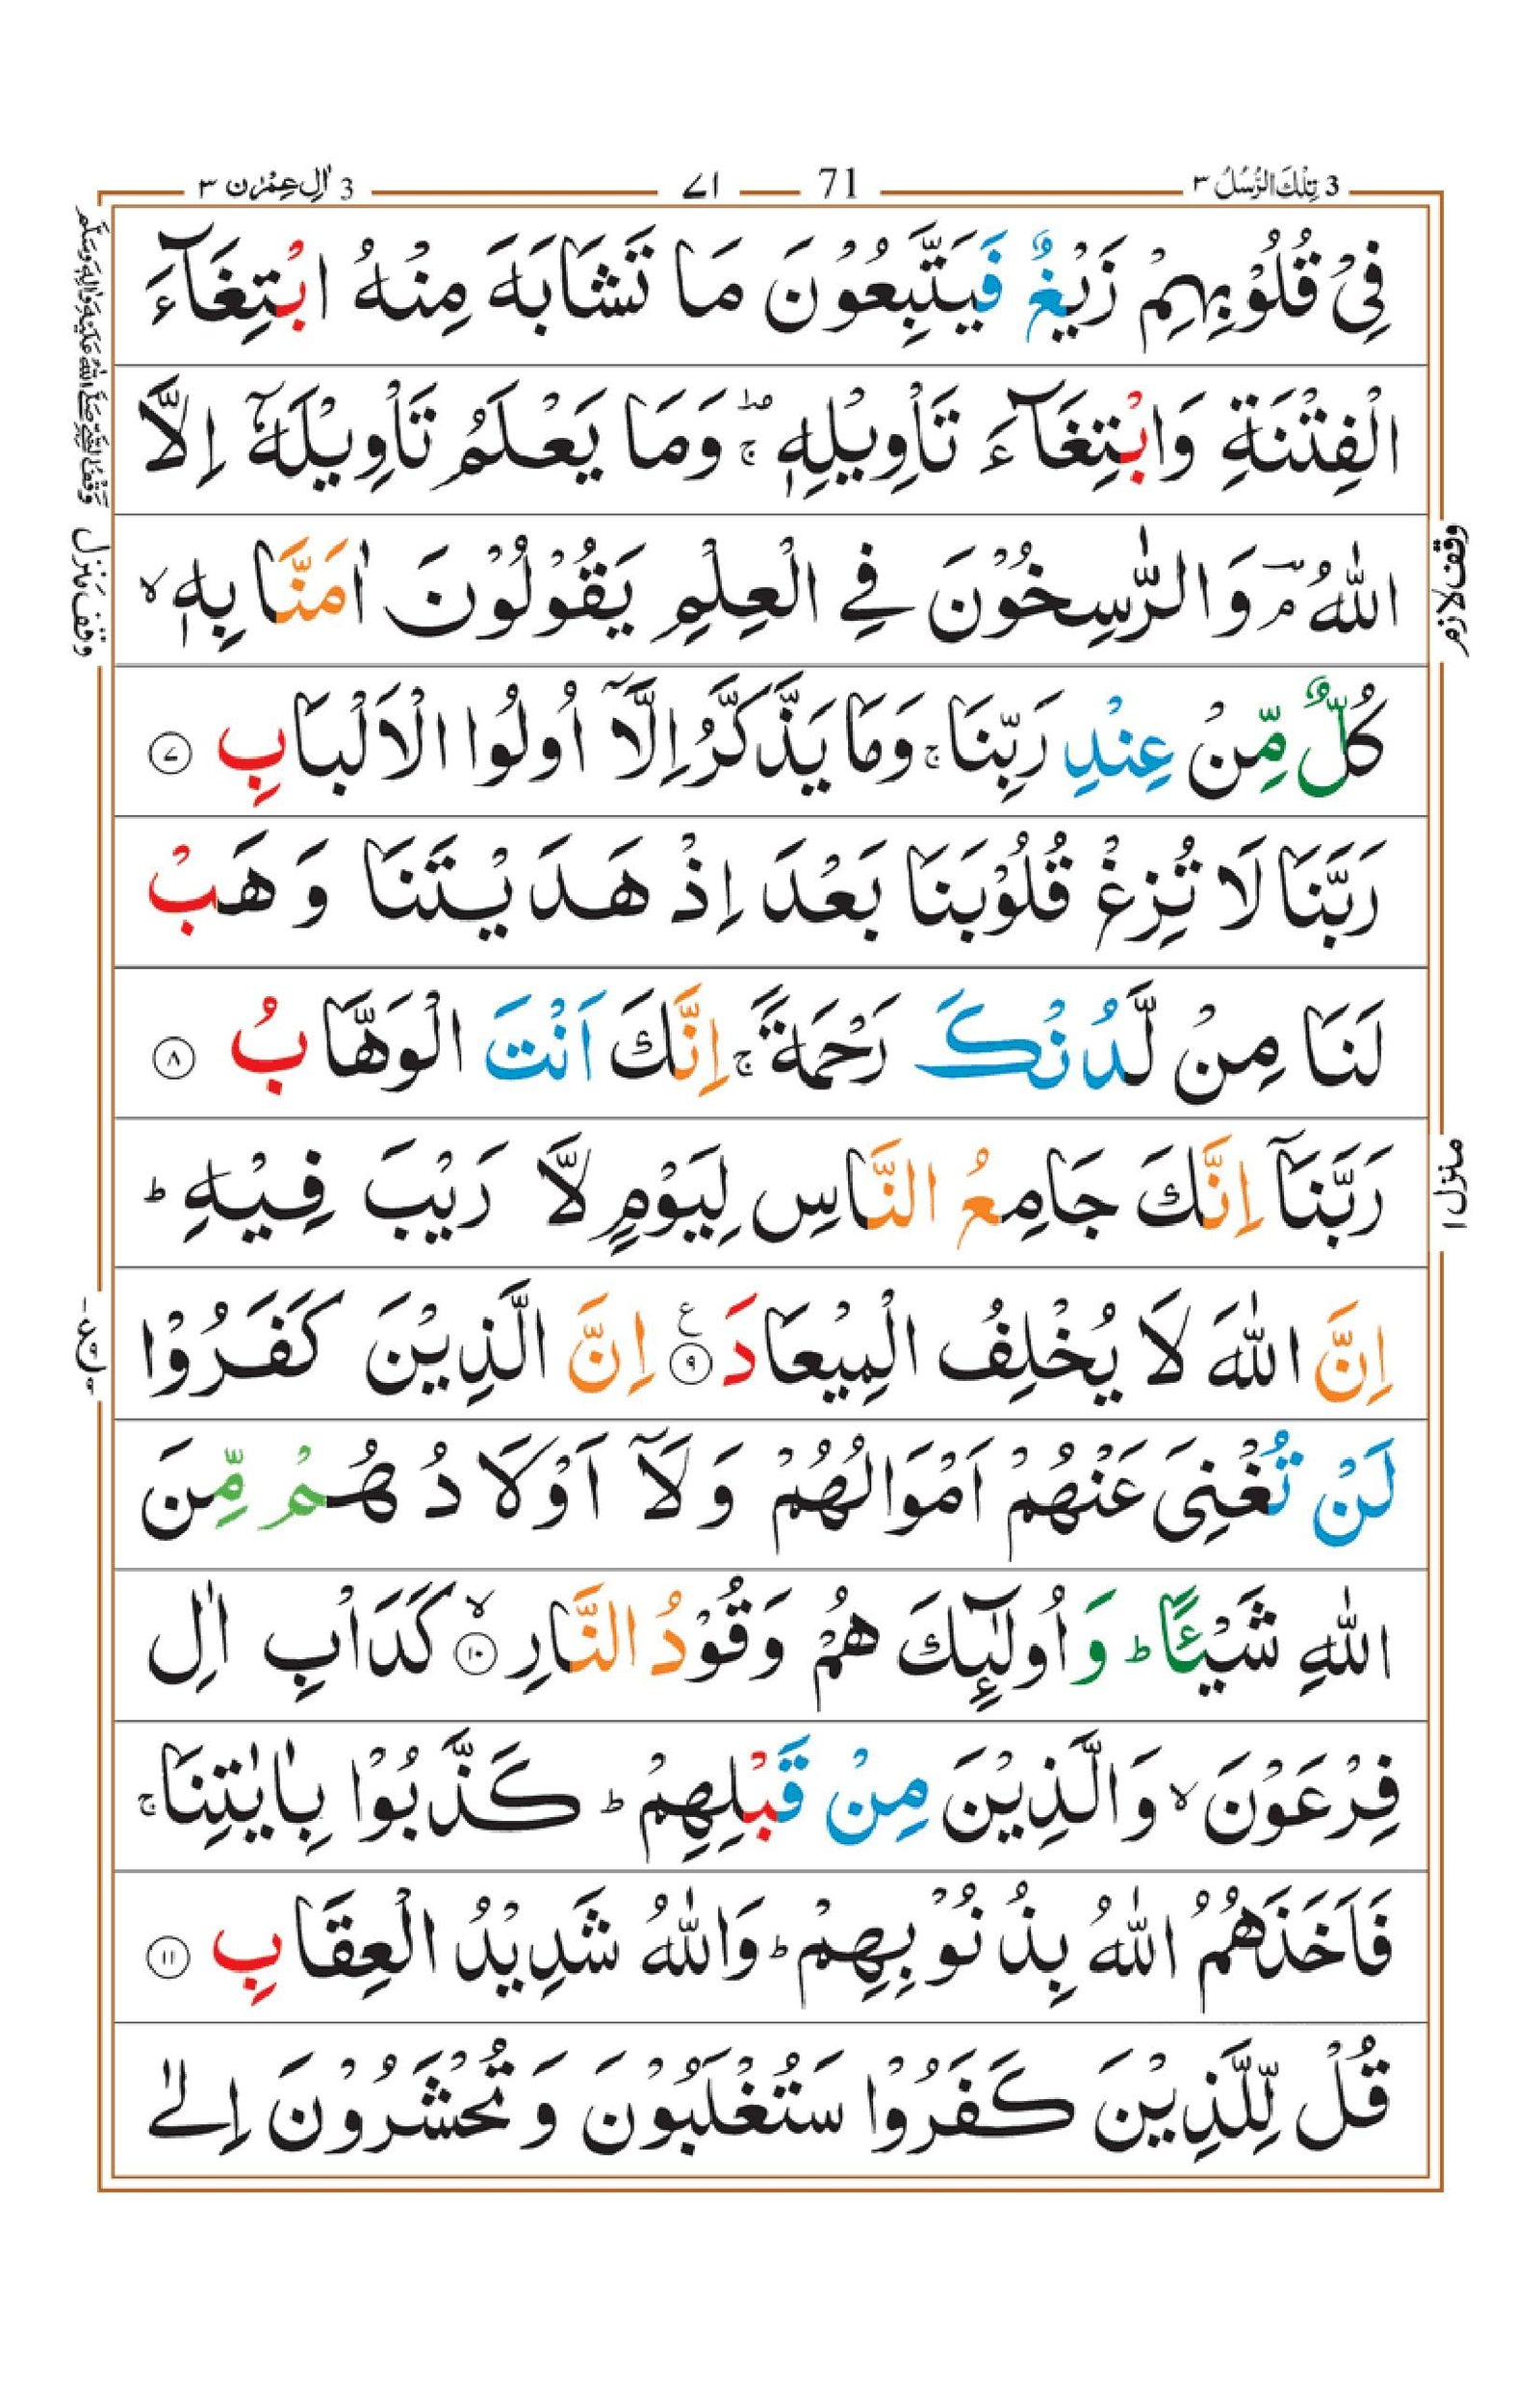 3 تِلْكَ الرُّسُلُ ٣
71
٧١
3 اٰلِ عِمْرٰن ٣
فِیْ قُلُوْبِهِمْ زَیْغٌ فَیَتَّبِعُوْنَ مَا تَشَابَهَ مِنْهُ ابْتِغَآءَ
الْفِتْنَةِ وَابْتِغَآءَ تَاْوِیْلِهٖ ۚ وَمَا یَعْلَمُ تَاْوِیْلَهٗۤ اِلَّا
اللّٰهُ ۘ وَالرّٰسِخُوْنَ فِی الْعِلْمِ یَقُوْلُوْنَ اٰمَنَّا بِهٖ ۙ
كُلٌّ مِّنْ عِنْدِ رَبِّنَا ۚ وَمَا یَذَّكَّرُ اِلَّاۤ اُولُوا الْاَلْبَابِ ۝۷
رَبَّنَا لَا تُزِغْ قُلُوْبَنَا بَعْدَ اِذْ هَدَیْتَنَا وَهَبْ
لَنَا مِنْ لَّدُنْكَ رَحْمَةً ۚ اِنَّكَ اَنْتَ الْوَهَّابُ ۝۸
رَبَّنَاۤ اِنَّكَ جَامِعُ النَّاسِ لِیَوْمٍ لَّا رَیْبَ فِیْهِ ؕ
اِنَّ اللّٰهَ لَا یُخْلِفُ الْمِیْعَادَ ۝۹ ع اِنَّ الَّذِیْنَ كَفَرُوْا
لَنْ تُغْنِیَ عَنْهُمْ اَمْوَالُهُمْ وَلَاۤ اَوْلَادُهُمْ مِّنَ
اللّٰهِ شَیْـًٔا ؕ وَاُولٰٓىِٕكَ هُمْ وَقُوْدُ النَّارِ ۝۱۰ۙ كَدَاْبِ اٰلِ
فِرْعَوْنَ ۙ وَالَّذِیْنَ مِنْ قَبْلِهِمْ ؕ كَذَّبُوْا بِاٰیٰتِنَا ۚ
فَاَخَذَهُمُ اللّٰهُ بِذُنُوْبِهِمْ ؕ وَاللّٰهُ شَدِیْدُ الْعِقَابِ ۝۱۱
قُلْ لِّلَّذِیْنَ كَفَرُوْا سَتُغْلَبُوْنَ وَتُحْشَرُوْنَ اِلٰی
وقف لازم
منزل ۱
وقف منزل